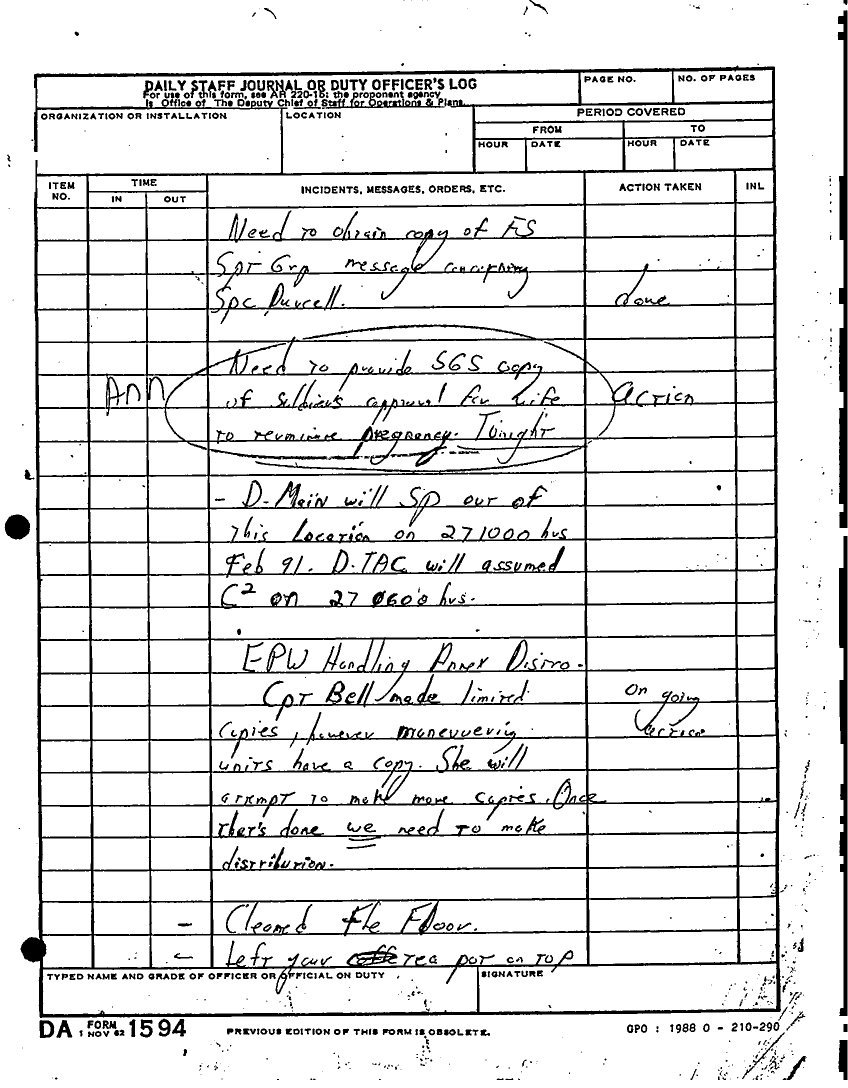 DAILY STAFF JOURNAL OR DUTY OFFICER'S LOG
For use of this form, see AR 220-15; the proponent agency
is Office of The Deputy Chief of Staff for Operations & Plans.
PAGE NO.
NO. OF PAGES
ORGANIZATION OR INSTALLATION
LOCATION
PERIOD COVERED
FROM
TO
HOUR
DATE
HOUR
DATE
ITEM NO.
TIME
IN
OUT
INCIDENTS, MESSAGES, ORDERS, ETC.
ACTION TAKEN
INL
Need to obtain copy of FS
Spt Grp message concerning
Spc Purcell.
done
Need to provide SGS copy
Ann
of soldier's approval for wife
Action
to terminate pregnancy. Tonight
- D-Main will SP out of
this location on 271000 hrs
Feb 91. D-TAC will assumed
C² on 27 0600 hrs.
EPW Handling Annex Distro.
Cpt Bell made limited
On going
copies, however maneuvering
action
units have a copy. She will
attempt to make more copies. Once
that's done we need to make
distribution.
- Cleaned the Floor.
- Left your tea pot on top
TYPED NAME AND GRADE OF OFFICER OR OFFICIAL ON DUTY
SIGNATURE
DA FORM 1 NOV 62 1594
PREVIOUS EDITION OF THIS FORM IS OBSOLETE.
GPO : 1988 O - 210-290